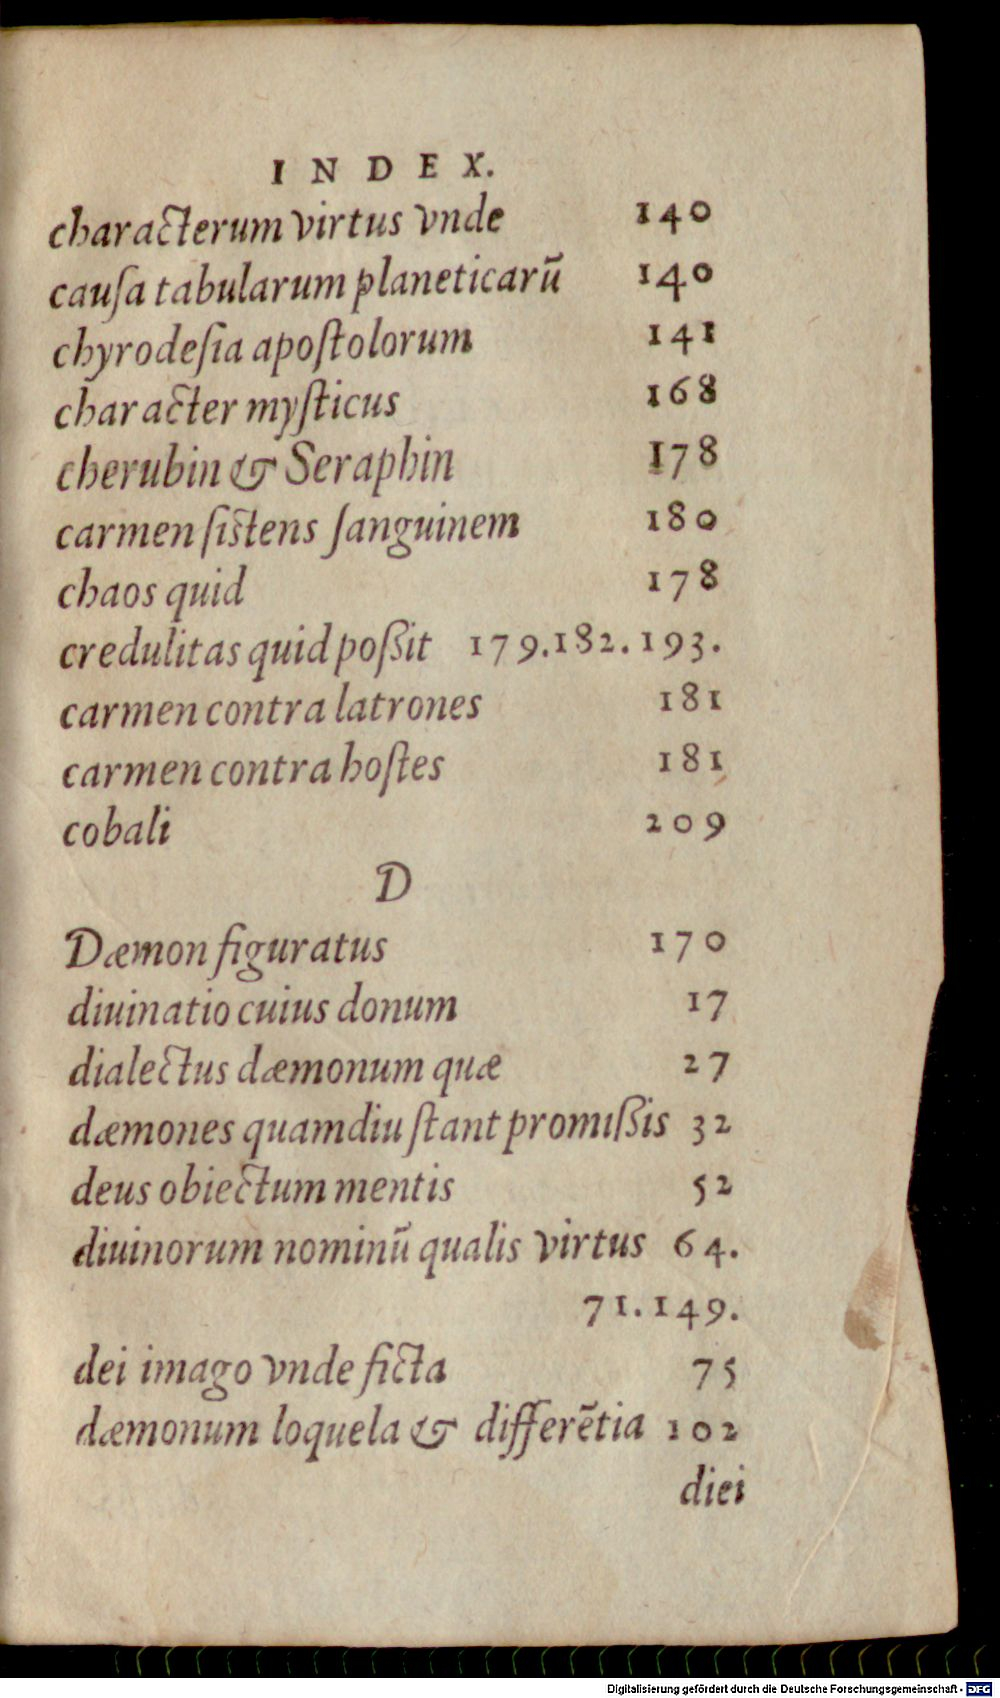 INDEX.
characterum virtus vnde 140
cauſa tabularum planeticarũ 140
chyrodeſia apoſtolorum 141
character myſticus 168
cherubin & Seraphin 178
carmen ſiſtens ſanguinem 180
chaos quid 178
credulitas quid poßit 179.182.193.
carmen contra latrones 181
carmen contra hoſtes 181
cobali 209
D
Dæmon figuratus 170
diuinatio cuius donum 17
dialectus dæmonum quæ 27
dæmones quamdiu ſtant promißis 32
deus obiectum mentis 52
diuinorum nominũ qualis virtus 64.
71.149.
dei imago vnde ficta 75
dæmonum loquela & differẽtia 102
diei
Digitalisierung gefördert durch die Deutsche Forschungsgemeinschaft - DFG